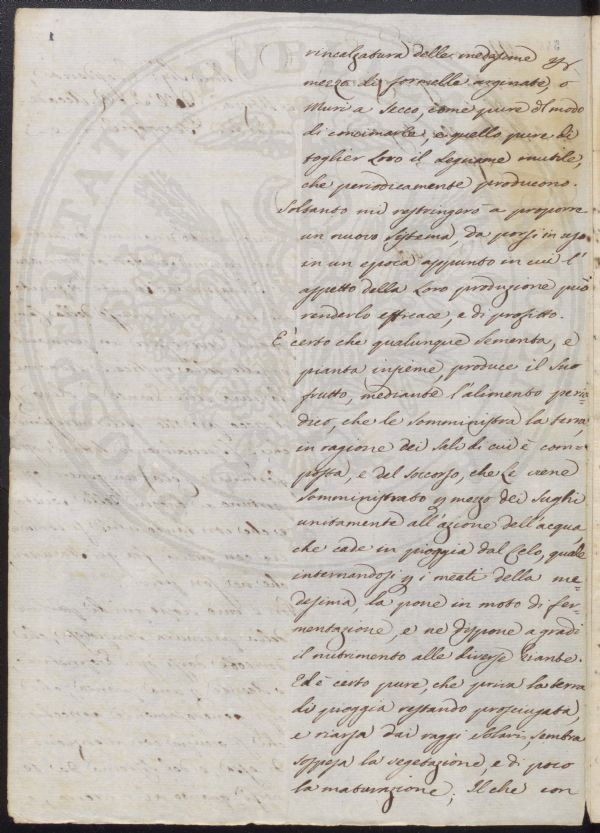 rincalzatura delle medesime p
mezzo di formelle arginate, o
Muri a Secco, come pure il modo
di concimarle, e quello pure di
toglier Loro il Legname inutile,
che periodicamente producono.
Soltanto mi restringerò a proporre
un nuovo Sistema, da porsi in uso
in un epoca appunto in cui l'
aspetto della Loro produzione può
renderlo efficace, e di profitto.
E' certo che qualunque sementa, e
pianta insieme, produce il suo
frutto, mediante l'alimento perio=
dico, che le somministra la terra,
in ragione dei Sali di cui è com=
posta, e del soccorso, che Le viene
somministrato p mezzo dei Sughi
unitamente all'azione dell'acqua,
che cade in pioggia dal Celo, quale
internandosi p i meati della me=
desima, la pone in moto di fer=
mentazione, e ne dispone a gradi
il nutrimento alle diverse Piante.
Ed è certo pure, che priva la terra
di pioggia restando prosciugata,
e riarsa dai raggi Solari, sembra
soppesa la vegetazione, e di poco
la maturazione; Il che con